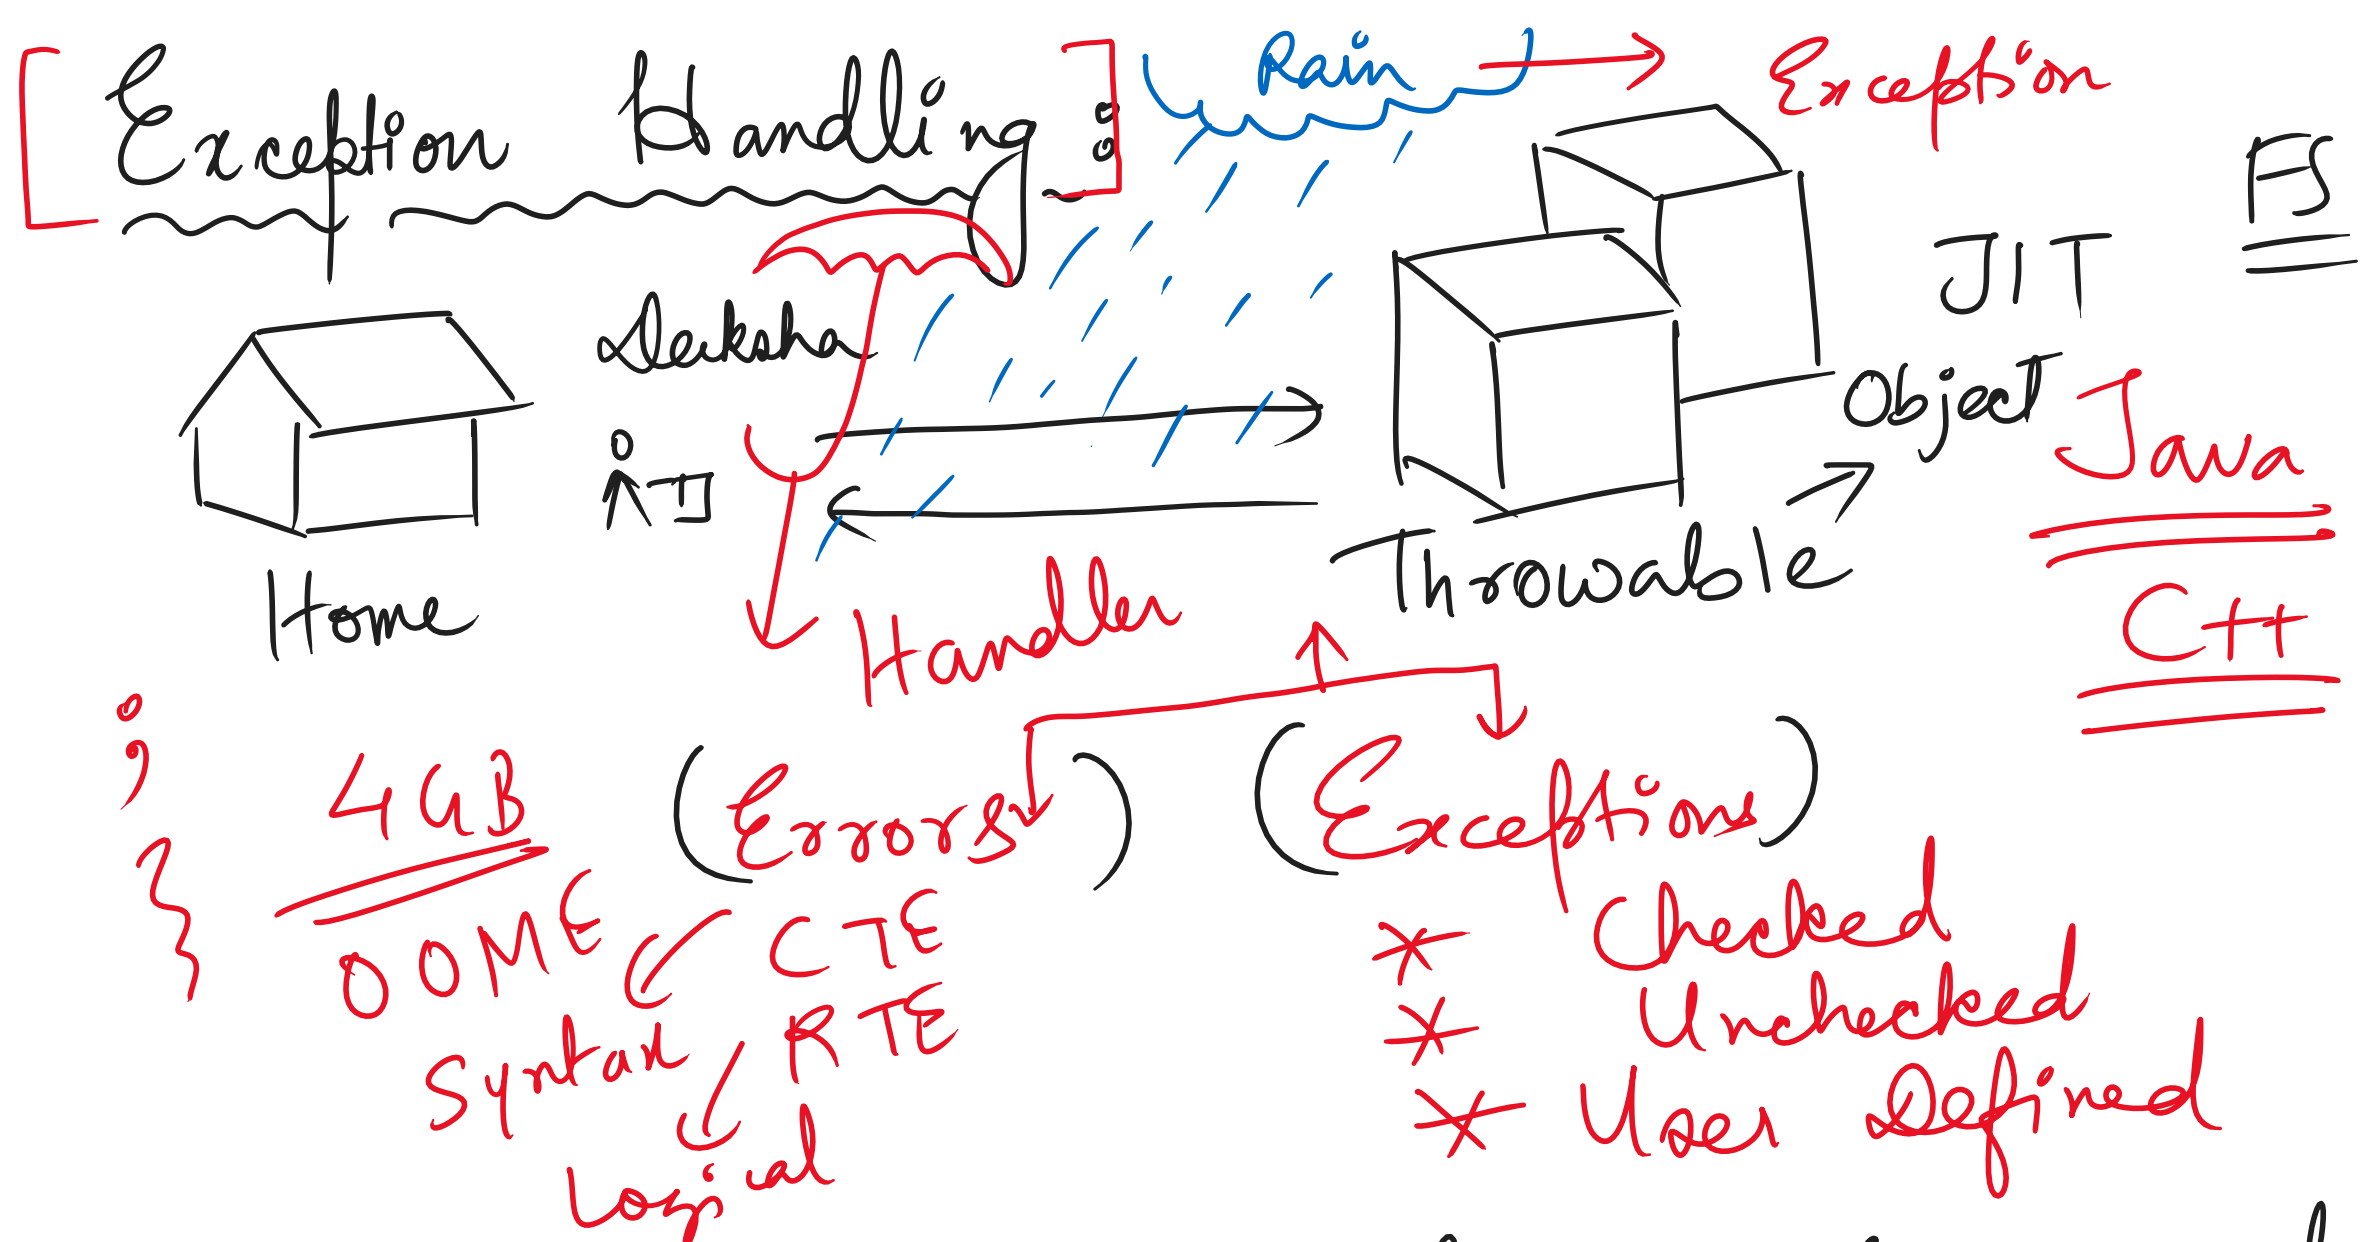 Exception Handling :
Rain → Exception
FS
JIT
Deeksha
Object
Java
Home
Handler
Throwable
C++
;
4GB
(Errors)
(Exceptions)
OOME
CTE
* Checked
Syntax
RTE
* Unchecked
* User Defined
Logical